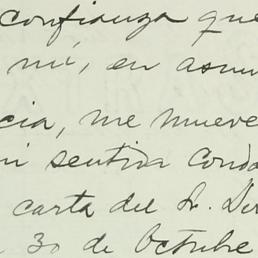 confianza que
mí, en asun
cia, me mueve
mi sentida condo
carta del Sr. Dir
30 de Octubre